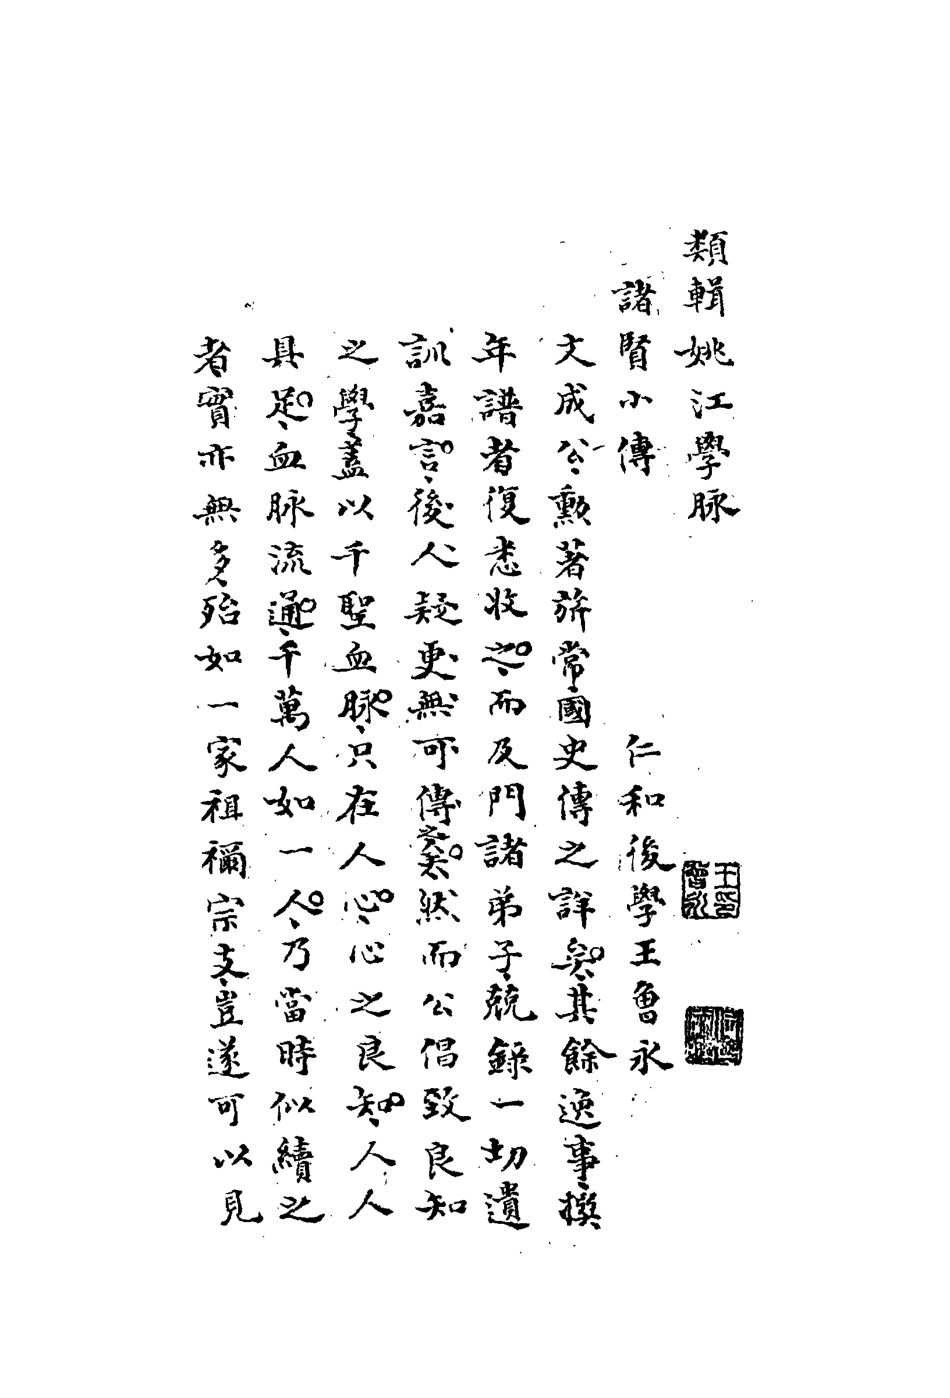 類輯姚江學脉
諸賢小傳
仁和後學王魯永
文成公勳著旂常國史傳之詳矣其餘逸事撰
年譜者復悉收之而及門諸弟子競錄一切遺
訓嘉言後人疑更無可傳之矣然而公倡致良知
之學蓋以千聖血脉只在人心心之良知人人
具足血脉流通千萬人如一人乃當時似續之
者實亦無多殆如一家祖禰宗支豈遂可以見
王魯永印